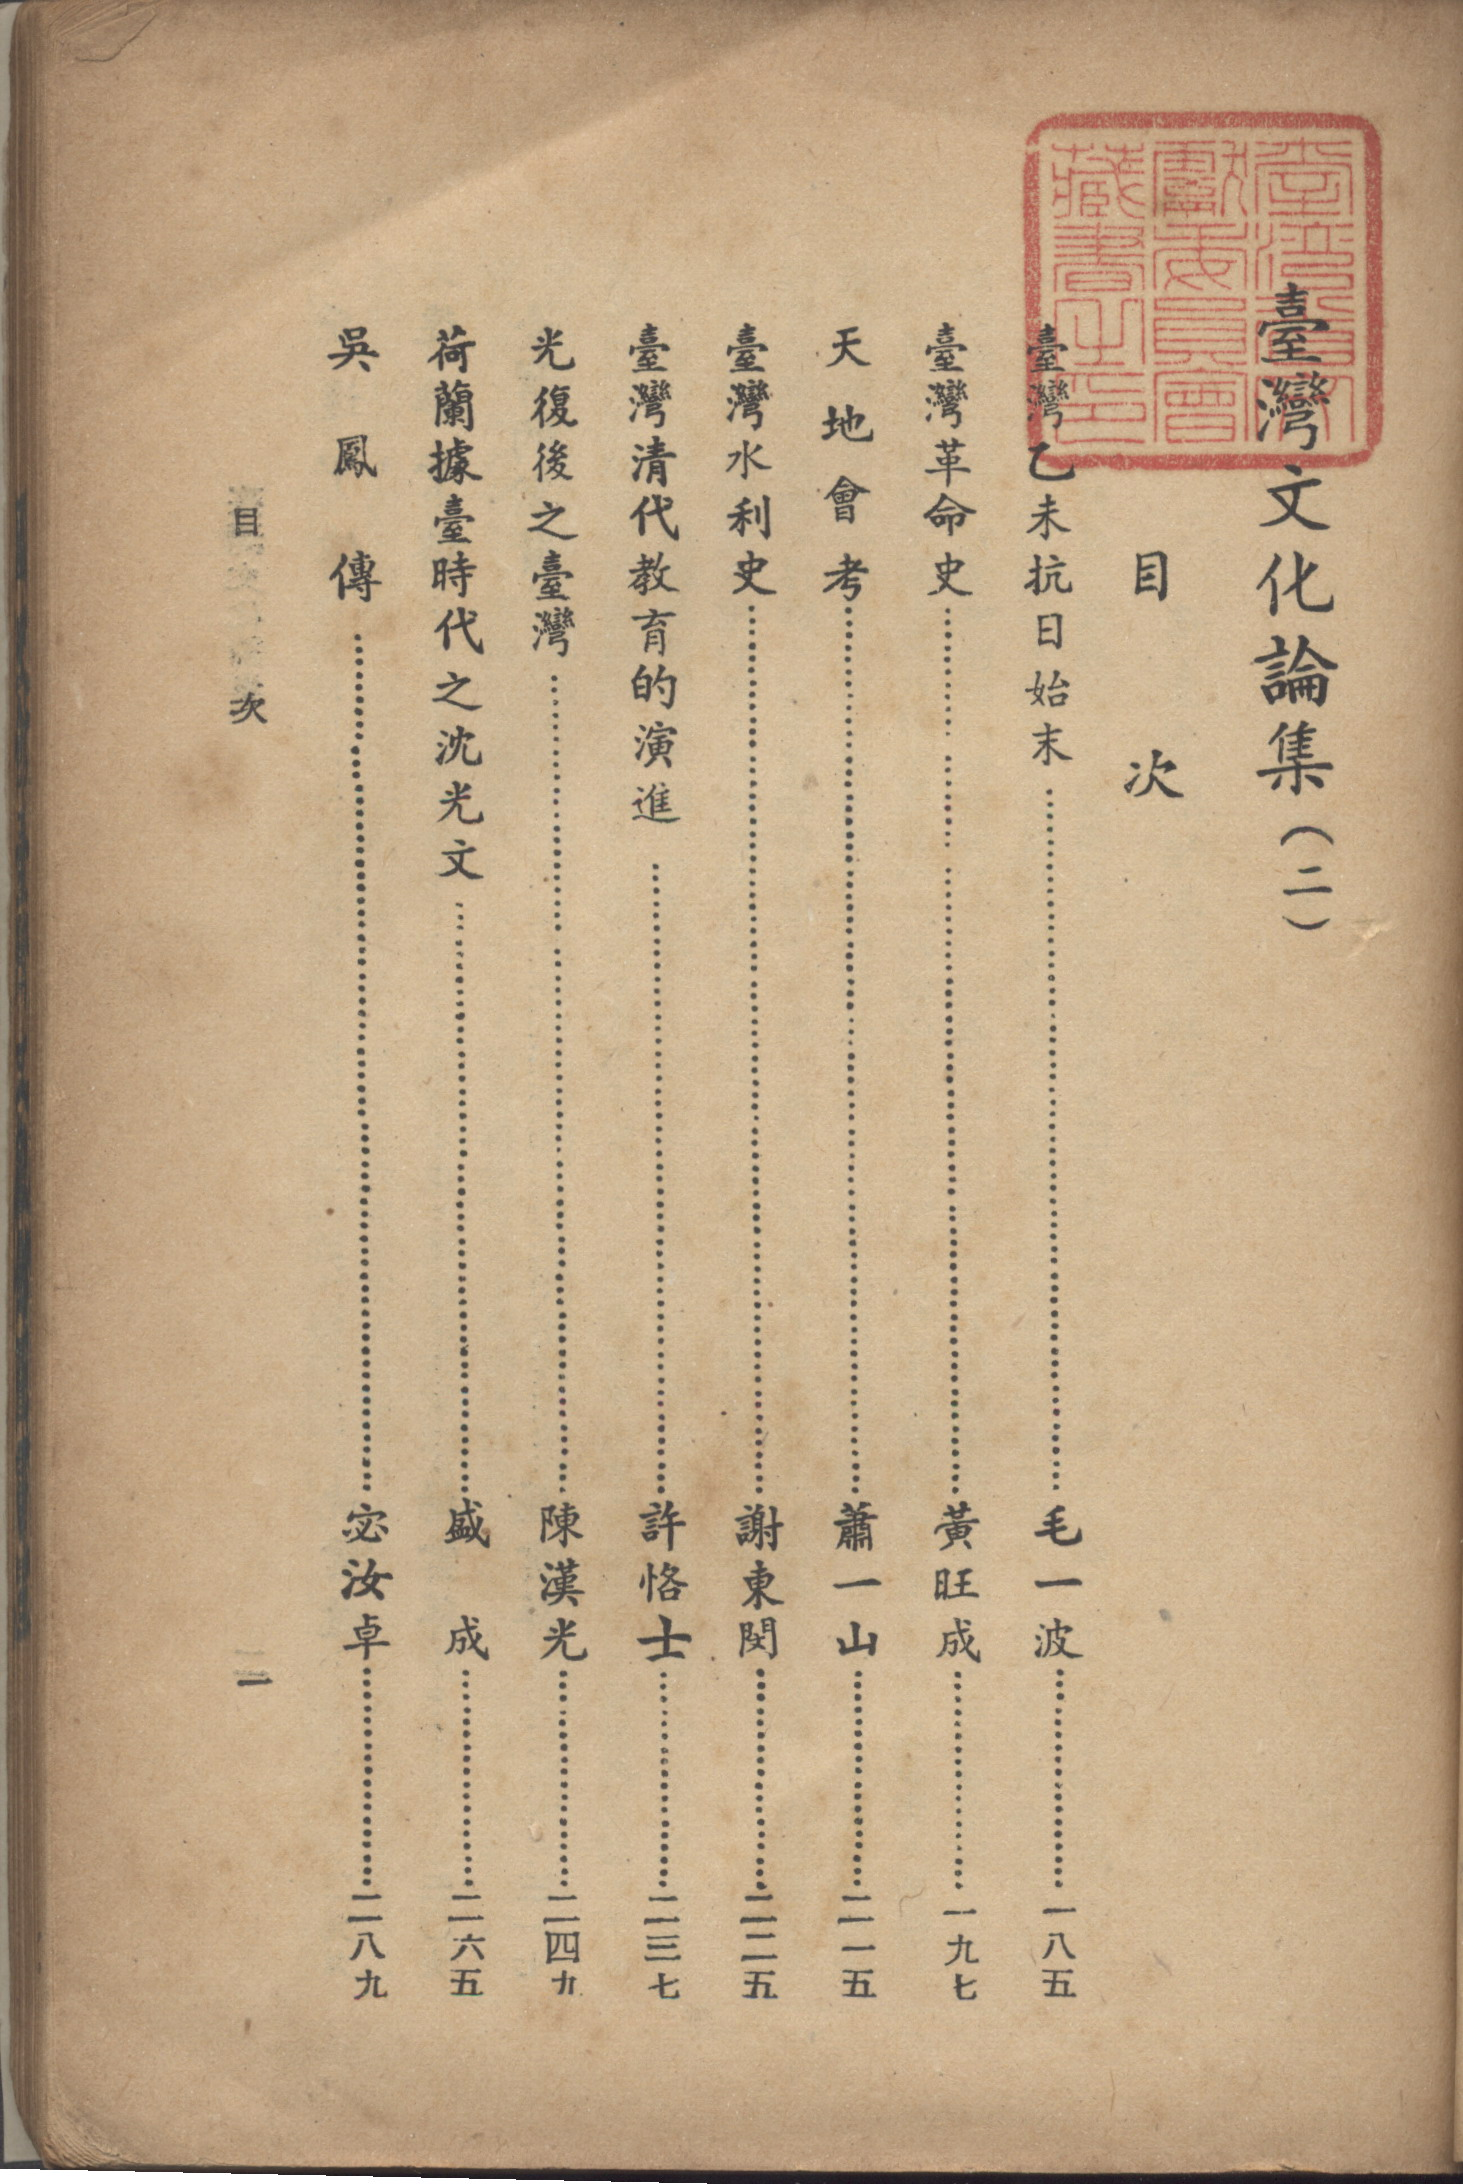 臺灣省文
獻委員會
藏書之印
臺灣文化論集(二)
目次
臺灣乙未抗日始末……毛一波……一八五
臺灣革命史……黃旺成……一九七
天地會考……蕭一山……二一五
臺灣水利史……謝東閔……二二五
臺灣清代教育的演進……許恪士……二三七
光復後之臺灣……陳漢光……二四九
荷蘭據臺時代之沈光文……盛成……二六五
吳鳳傳……宓汝卓……二八九
目次
一